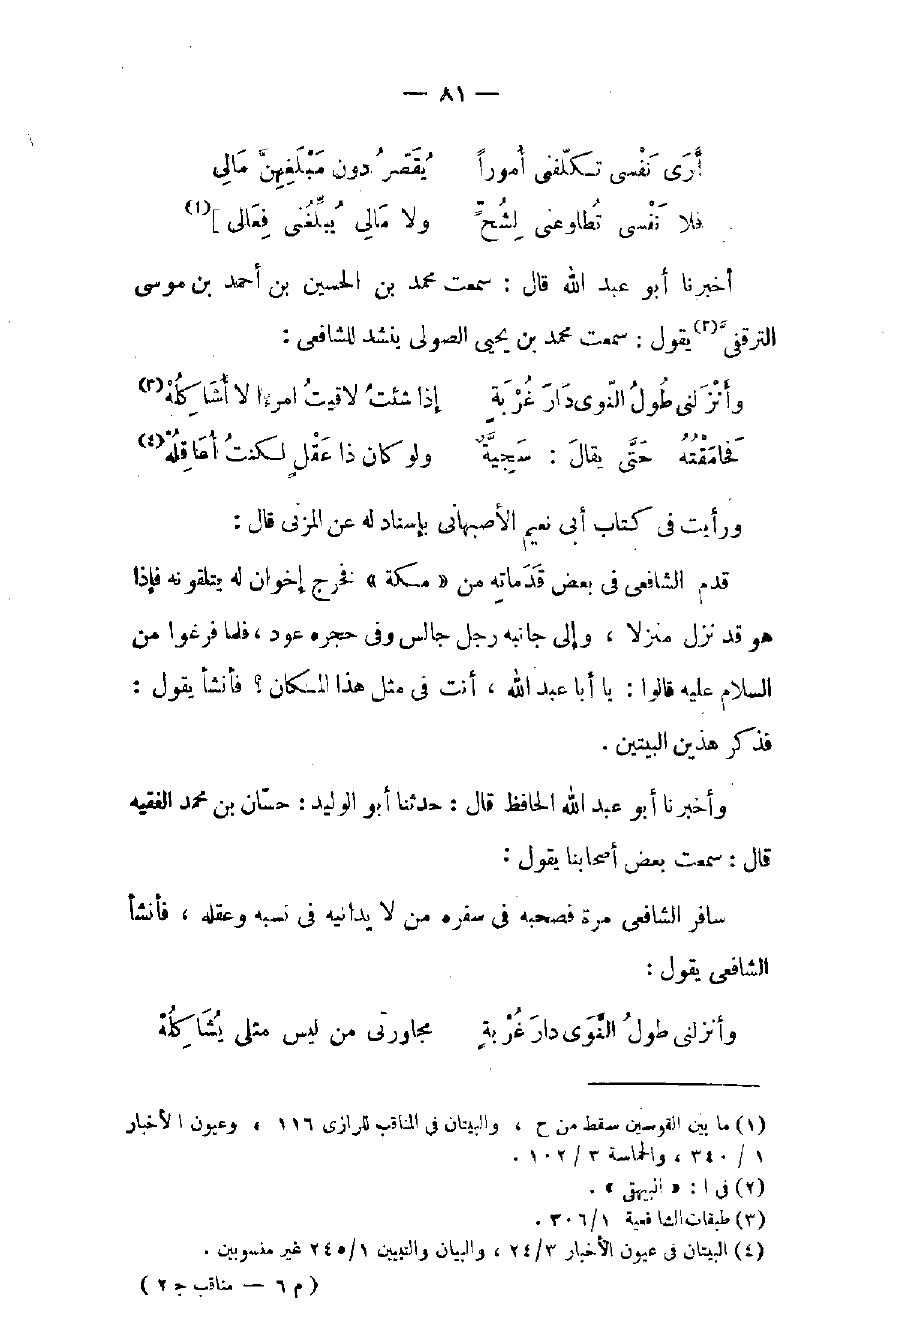 — ٨١ —
أَرَى نَفْسى تـكلّفنى أُموراً يُقَصِّر دون مَبْلَغِهِنَّ مَالِى
فلا نَفْسى تُطاوعنى لِشُحٍّ ولا مَالِى يُبَلِّغُنى فِعَالى ](١)
أخبرنا أبو عبد الله قال : سمعت محمد بن الحسين بن أحمد بن موسى
الترقفىّ(٢) يقول : سمعت محمد بن يحيى الصولى ينشد للشافعى :
وأَنْزَلنى طُولُ النّوى دَارَ غُرْبَةٍ إذا شئتُ لاقيتُ امرءًا لا أُشَاكِلُهْ(٣)
فحَامَقْتُهُ حَتَّى يقالَ : سَجِيَّةٌ ولو كان ذا عَقْلٍ لـكنتُ أُعَاقِلُهْ(٤)
ورأيت فى كتاب أبى نعيم الأصبهانى بإسناد له عن المزنى قال :
قدم الشافعى فى بعض قَدَمَاتِه من « مـكة » فخرج إخوان له يتلقونه فإذا
هو قد نزل منزلا ، وإلى جانبه رجل جالس وفى حجره عود ، فلما فرغوا من
السلام عليه قالوا : يا أبا عبد الله ، أنت فى مثل هذا المـكان ؟ فأنشأ يقول :
فذكر هذين البيتين .
وأخبرنا أبو عبد الله الحافظ قال : حدثنا أبو الوليد : حسّان بن محمد الفقيه
قال : سمعت بعض أصحابنا يقول :
سافر الشافعى مرة فصحبه فى سفره من لا يدانيه فى نسبه وعقله ، فأنشأ
الشافعى يقول :
وأنزلنى طولُ النَّوَى دارَ غُرْبةٍ مجاورتى من ليس مثلى يُشَاكِلُهْ
(١) ما بين القوسين سقط من ح ، والبيتان فى المناقب للرازى ١١٦ ، وعيون الأخبار
١ / ٣٤٠ ، والحماسة ٣ / ١٠٢ .
(٢) فى ا : « البيهقى » .
(٣) طبقات الشافعية ٣٠٦/١ .
(٤) البيتان فى عيون الأخبار ٢٤/٣ ، والبيان والتبيين ٢٤٥/١ غير منسوبين .
( م ٦ — مناقب ج ٢ )